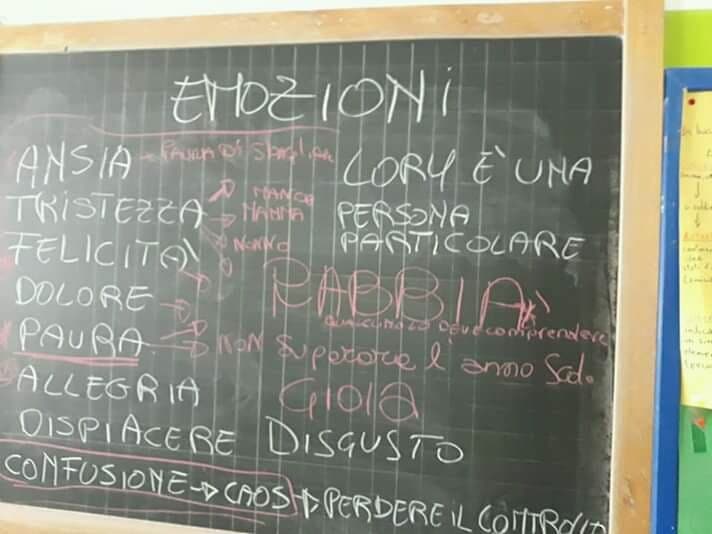 EMOZIONI
ANSIA - PAURA DI SBAGLIARE
LORY È UNA
TRISTEZZA MANCA
MAMMA
NONNO
PERSONA
PARTICOLARE
FELICITÀ
DOLORE
RABBIA
QUALCUNO LO DEVE comprendere
PAURA NON superare l'anno Scol.
ALLEGRIA GIOIA
DISPIACERE DISGUSTO
CONFUSIONE → CAOS → PERDERE IL CONTROLLO